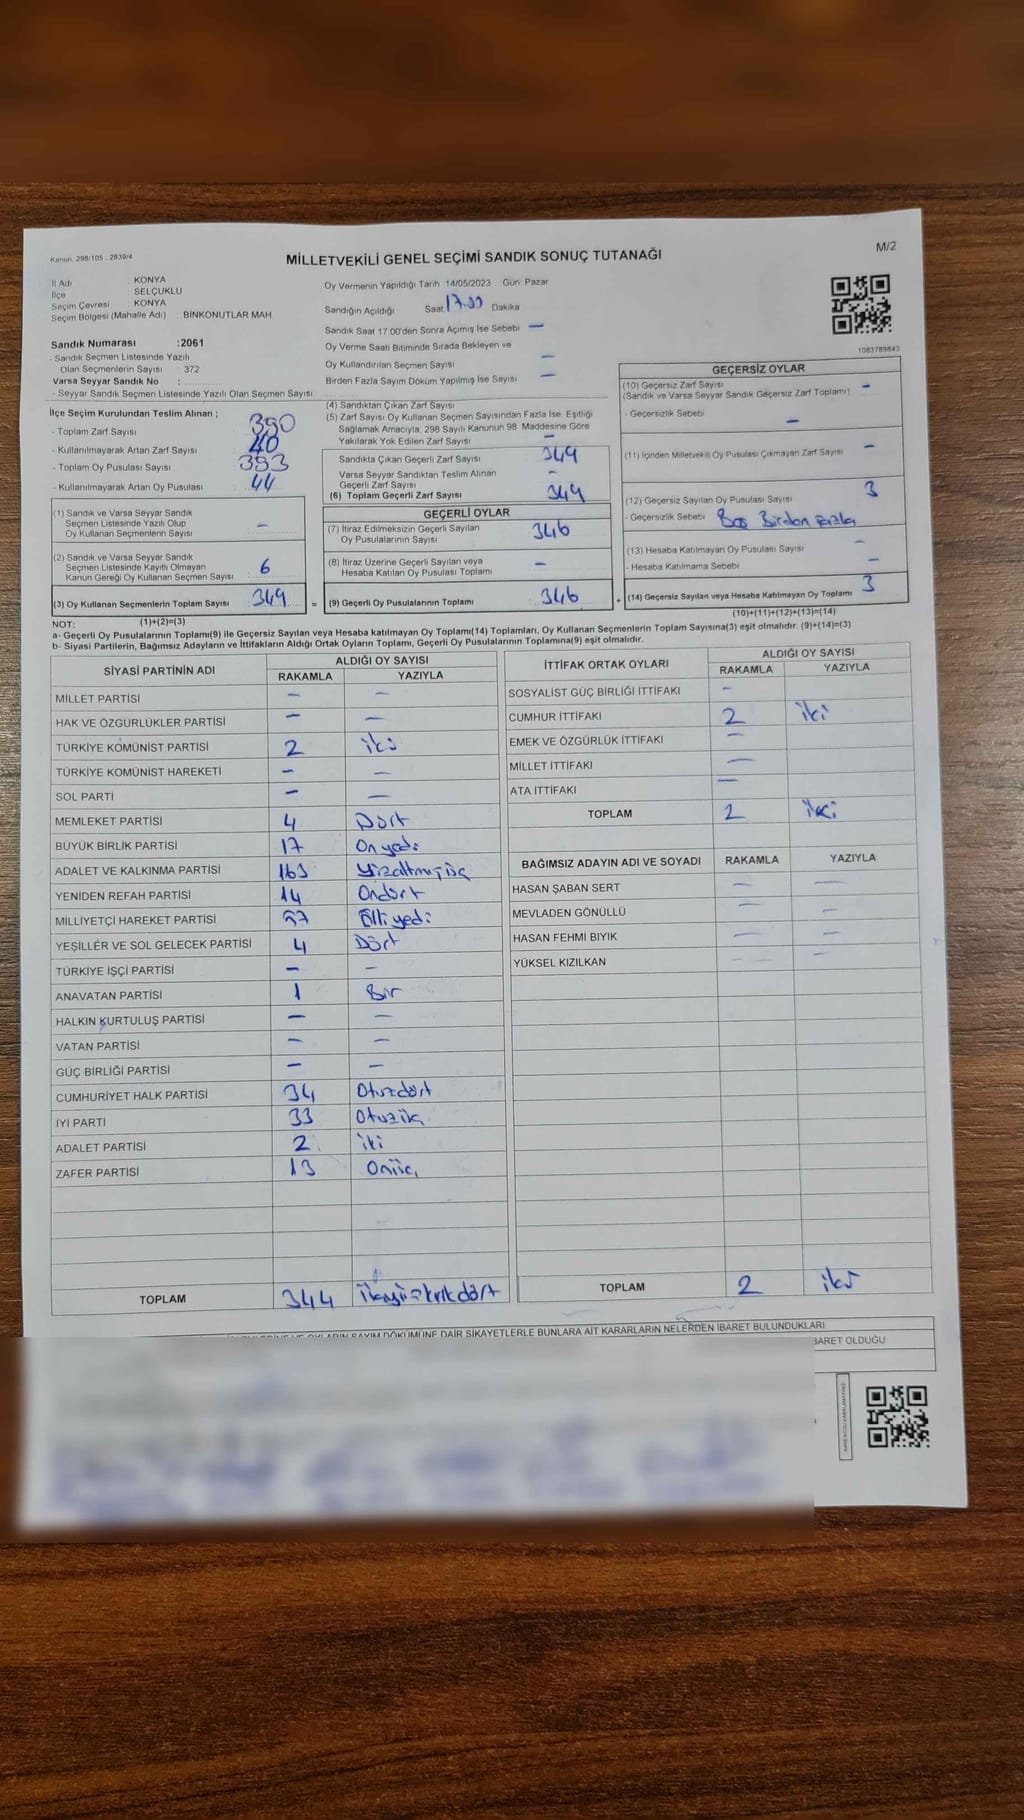 Kanun, 298/105 , 2839/4
MİLLETVEKİLİ GENEL SEÇİMİ SANDIK SONUÇ TUTANAĞI
M/2
İl Adı : KONYA
İlçe : SELÇUKLU
Seçim Çevresi : KONYA
Seçim Bölgesi (Mahalle Adı) : BİNKONUTLAR MAH
Oy Vermenin Yapıldığı Tarih 14/05/2023 Gün: Pazar
Sandığın Açıldığı Saat Dakika
Sandık Saat 17:00'den Sonra Açımış İse Sebebi —
Oy Verme Saati Bitiminde Sırada Bekleyen ve
Oy Kullandırılan Seçmen Sayısı —
Birden Fazla Sayım Döküm Yapılmış İse Sayısı —
1083789843
Sandık Numarası :2061
- Sandık Seçmen Listesinde Yazılı
Olan Seçmenlerin Sayısı : 372
Varsa Seyyar Sandık No :
- Seyyar Sandık Seçmen Listesinde Yazılı Olan Seçmen Sayısı
İlçe Seçim Kurulundan Teslim Alınan ;
- Toplam Zarf Sayısı 390
- Kullanılmayarak Artan Zarf Sayısı 40
- Toplam Oy Pusulası Sayısı 393
- Kullanılmayarak Artan Oy Pusulası 44
(1) Sandık ve Varsa Seyyar Sandık
Seçmen Listesinde Yazılı Olup
Oy Kullanan Seçmenlerin Sayısı —
(2) Sandık ve Varsa Seyyar Sandık
Seçmen Listesinde Kayıtlı Olmayan
Kanun Gereği Oy Kullanan Seçmen Sayısı 6
(3) Oy Kullanan Seçmenlerin Toplam Sayısı 349
(1)+(2)=(3)
(4) Sandıktan Çıkan Zarf Sayısı
(5) Zarf Sayısı Oy Kullanan Seçmen Sayısından Fazla İse, Eşitliği
Sağlamak Amacıyla, 298 Sayılı Kanunun 98. Maddesine Göre
Yakılarak Yok Edilen Zarf Sayısı —
Sandıkta Çıkan Geçerli Zarf Sayısı 349
Varsa Seyyar Sandıktan Teslim Alınan
Geçerli Zarf Sayısı —
(6) Toplam Geçerli Zarf Sayısı 349
GEÇERLİ OYLAR
(7) İtiraz Edilmeksizin Geçerli Sayılan
Oy Pusulalarının Sayısı 346
(8) İtiraz Üzerine Geçerli Sayılan veya
Hesaba Katılan Oy Pusulası Toplamı —
= (9) Geçerli Oy Pusulalarının Toplamı 346 +
GEÇERSİZ OYLAR
(10) Geçersiz Zarf Sayısı —
(Sandık ve Varsa Seyyar Sandık Geçersiz Zarf Toplamı)
- Geçersizlik Sebebi —
(11) İçinden Milletvekili Oy Pusulası Çıkmayan Zarf Sayısı —
(12) Geçersiz Sayılan Oy Pusulası Sayısı 3
- Geçersizlik Sebebi Boş Birden fazla
(13) Hesaba Katılmayan Oy Pusulası Sayısı —
- Hesaba Katılmama Sebebi —
(14) Geçersiz Sayılan veya Hesaba Katılmayan Oy Toplamı 3
(10)+(11)+(12)+(13)=(14)
NOT:
a- Geçerli Oy Pusulalarının Toplamı(9) ile Geçersiz Sayılan veya Hesaba katılmayan Oy Toplamı(14) Toplamları, Oy Kullanan Seçmenlerin Toplam Sayısına(3) eşit olmalıdır. (9)+(14)=(3)
b- Siyasi Partilerin, Bağımsız Adayların ve İttifakların Aldığı Ortak Oyların Toplamı, Geçerli Oy Pusulalarının Toplamına(9) eşit olmalıdır.
SİYASİ PARTİNİN ADI ALDIĞI OY SAYISI
RAKAMLA YAZIYLA
MİLLET PARTİSİ — —
HAK VE ÖZGÜRLÜKLER PARTİSİ — —
TÜRKİYE KOMÜNİST PARTİSİ 2 iki
TÜRKİYE KOMÜNİST HAREKETİ — —
SOL PARTİ — —
MEMLEKET PARTİSİ 4 Dört
BÜYÜK BİRLİK PARTİSİ 17 Onyedi
ADALET VE KALKINMA PARTİSİ 163 Yüzaltmışüç
YENİDEN REFAH PARTİSİ 14 Ondört
MİLLİYETÇİ HAREKET PARTİSİ 57 Elliyedi
YEŞİLLER VE SOL GELECEK PARTİSİ 4 Dört
TÜRKİYE İŞÇİ PARTİSİ — —
ANAVATAN PARTİSİ 1 Bir
HALKIN KURTULUŞ PARTİSİ — —
VATAN PARTİSİ — —
GÜÇ BİRLİĞİ PARTİSİ — —
CUMHURİYET HALK PARTİSİ 34 Otuzdört
İYİ PARTİ 33 Otuzüç
ADALET PARTİSİ 2 iki
ZAFER PARTİSİ 13 Onüç
TOPLAM 344
İTTİFAK ORTAK OYLARI ALDIĞI OY SAYISI
RAKAMLA YAZIYLA
SOSYALİST GÜÇ BİRLİĞİ İTTİFAKI —
CUMHUR İTTİFAKI 2 iki
EMEK VE ÖZGÜRLÜK İTTİFAKI —
MİLLET İTTİFAKI —
ATA İTTİFAKI —
TOPLAM 2 iki
BAĞIMSIZ ADAYIN ADI VE SOYADI RAKAMLA YAZIYLA
HASAN ŞABAN SERT — —
MEVLADEN GÖNÜLLÜ — —
HASAN FEHMİ BIYIK — —
YÜKSEL KIZILKAN — —
TOPLAM 2 iki
OYLARIN SAYIM DÖKÜMÜNE DAİR ŞİKAYETLERLE BUNLARA AİT KARARLARIN NELERDEN İBARET BULUNDUKLARI
BARET OLDUĞU